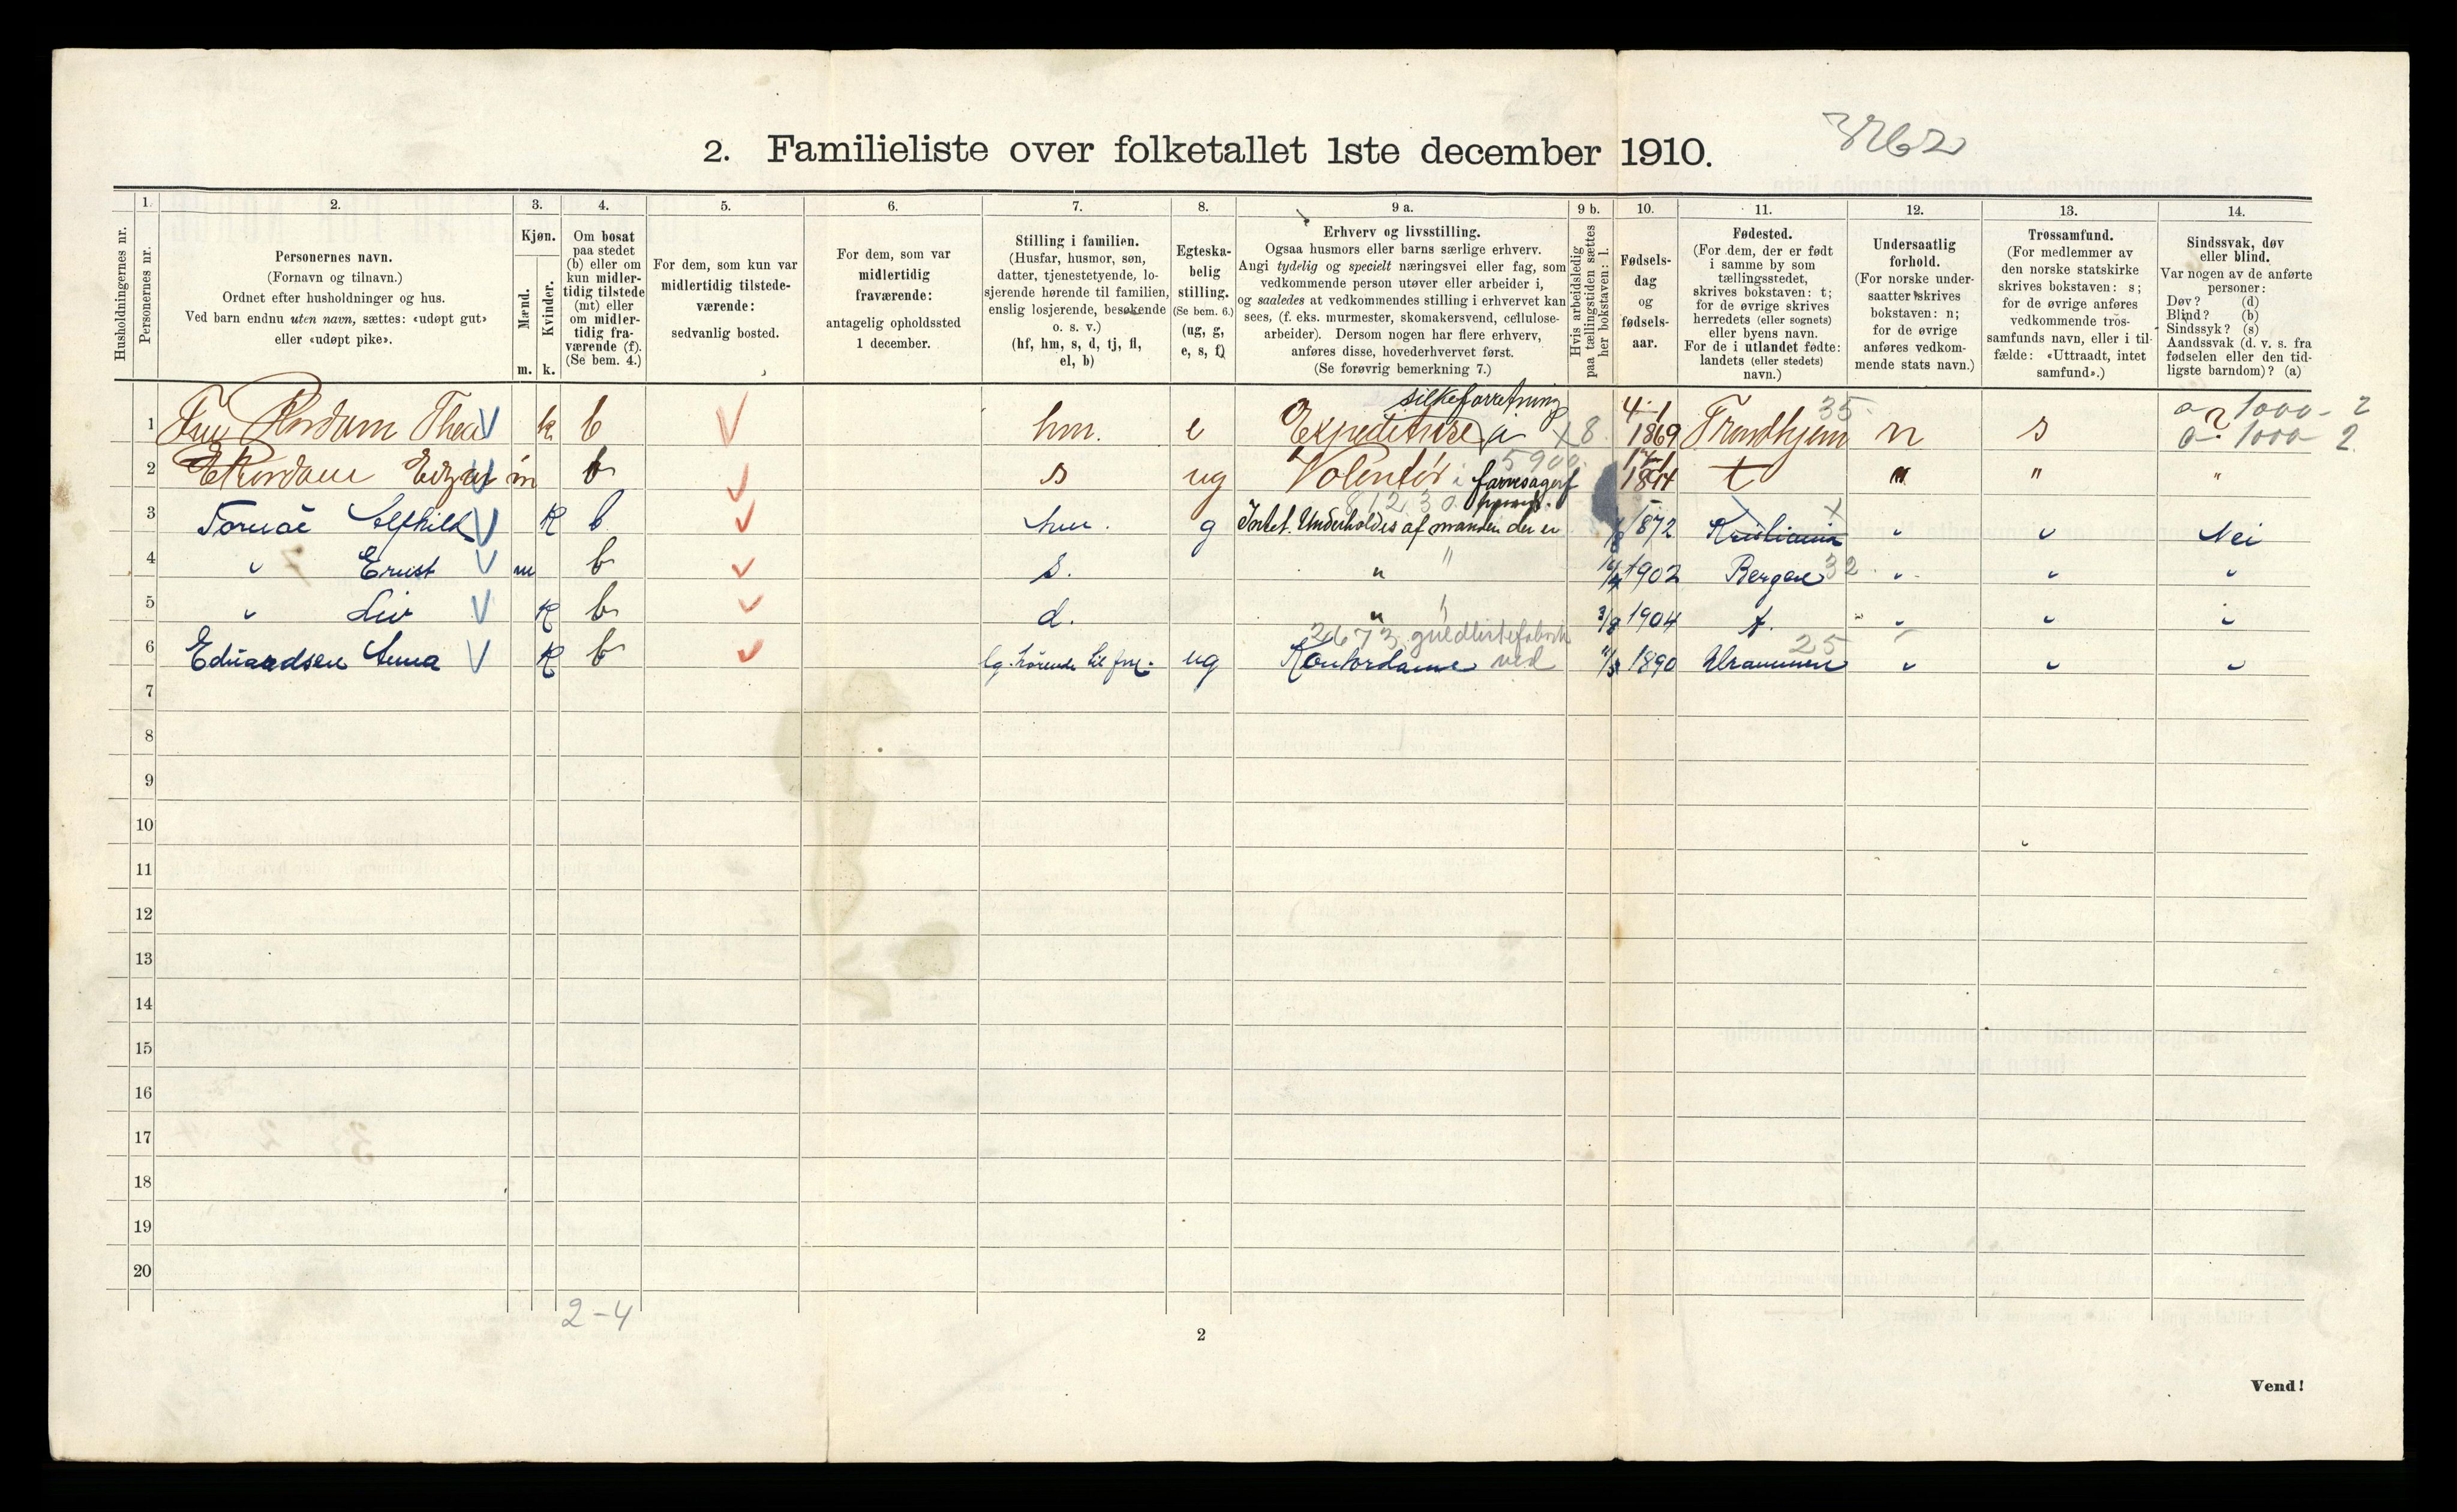 2. Familieliste over folketallet 1ste december 1910.
3262
Husholdningernes nr.
1.
Personernes nr.
2.
Personernes navn.
(Fornavn og tilnavn.)
Ordnet efter husholdninger og hus.
Ved barn endnu uten navn, sættes: «udøpt gut»
eller «udøpt pike».
3.
Kjøn.
Mænd.
Kvinder.
m. k.
4.
Om bosat
paa stedet
(b) eller om
kun midler-
tidig tilstede
(mt) eller
om midler-
tidig fra-
værende (f).
(Se bem. 4.)
5.
For dem, som kun var
midlertidig tilstede-
værende:
sedvanlig bosted.
6.
For dem, som var
midlertidig
fraværende:
antagelig opholdssted
1 december.
7.
Stilling i familien.
(Husfar, husmor, søn,
datter, tjenestetyende, lo-
sjerende hørende til familien,
enslig losjerende, besøkende
o. s. v.)
(hf, hm, s, d, tj, fl,
el, b)
8.
Egteska-
belig
stilling.
(Se bem. 6.)
(ug, g,
e, s, f)
9 a.
Erhverv og livsstilling.
Ogsaa husmors eller barns særlige erhverv.
Angi tydelig og specielt næringsvei eller fag, som
vedkommende person utøver eller arbeider i,
og saaledes at vedkommendes stilling i erhvervet kan
sees, (f. eks. murmester, skomakersvend, cellulose-
arbeider). Dersom nogen har flere erhverv,
anføres disse, hovederhvervet først.
(Se forøvrig bemerkning 7.)
9 b.
Hvis arbeidsledig
paa tællingstiden sættes
her bokstaven: l.
10.
Fødsels-
dag
og
fødsels-
aar.
11.
Fødested.
(For dem, der er født
i samme by som
tællingsstedet,
skrives bokstaven: t;
for de øvrige skrives
herredets (eller sognets)
eller byens navn.
For de i utlandet fødte:
landets (eller stedets)
navn.)
12.
Undersaatlig
forhold.
(For norske under-
saatter skrives
bokstaven: n;
for de øvrige
anføres vedkom-
mende stats navn.)
13.
Trossamfund.
(For medlemmer av
den norske statskirke
skrives bokstaven: s;
for de øvrige anføres
vedkommende tros-
samfunds navn, eller i til-
fælde: «Uttraadt, intet
samfund».)
14.
Sindssvak, døv
eller blind.
Var nogen av de anførte
personer:
Døv? (d)
Blind? (b)
Sindssyk? (s)
Aandssvak (d. v. s. fra
fødselen eller den tid-
ligste barndom)? (a)
silkeforretning 4-1 35 1000 - 2
1 Fru Rordam Thea k b hm. e Expeditrise i 8 1869 Trondhjem n s ? 1000 2
5900
2 Rordam Edgar m b s ug Volentör i 1894 t " " "
81230
3 Alfhild K b hm. g Intet. Underholdes af manden der er 1872 Kristiania " " Nei
4 " Ernst m b s. " 1902 Bergen 32 " " "
5 " Liv K b d. " 3/8 1904 t. " " "
2673 guldlistefabrik 25
6 Eduardsen Anna K b lg. hörende til fm. ug Kontordame ved 1890 Drammen " " "
7
8
9
10
11
12
13
14
15
16
17
18
19
20
2-4
2
Vend!